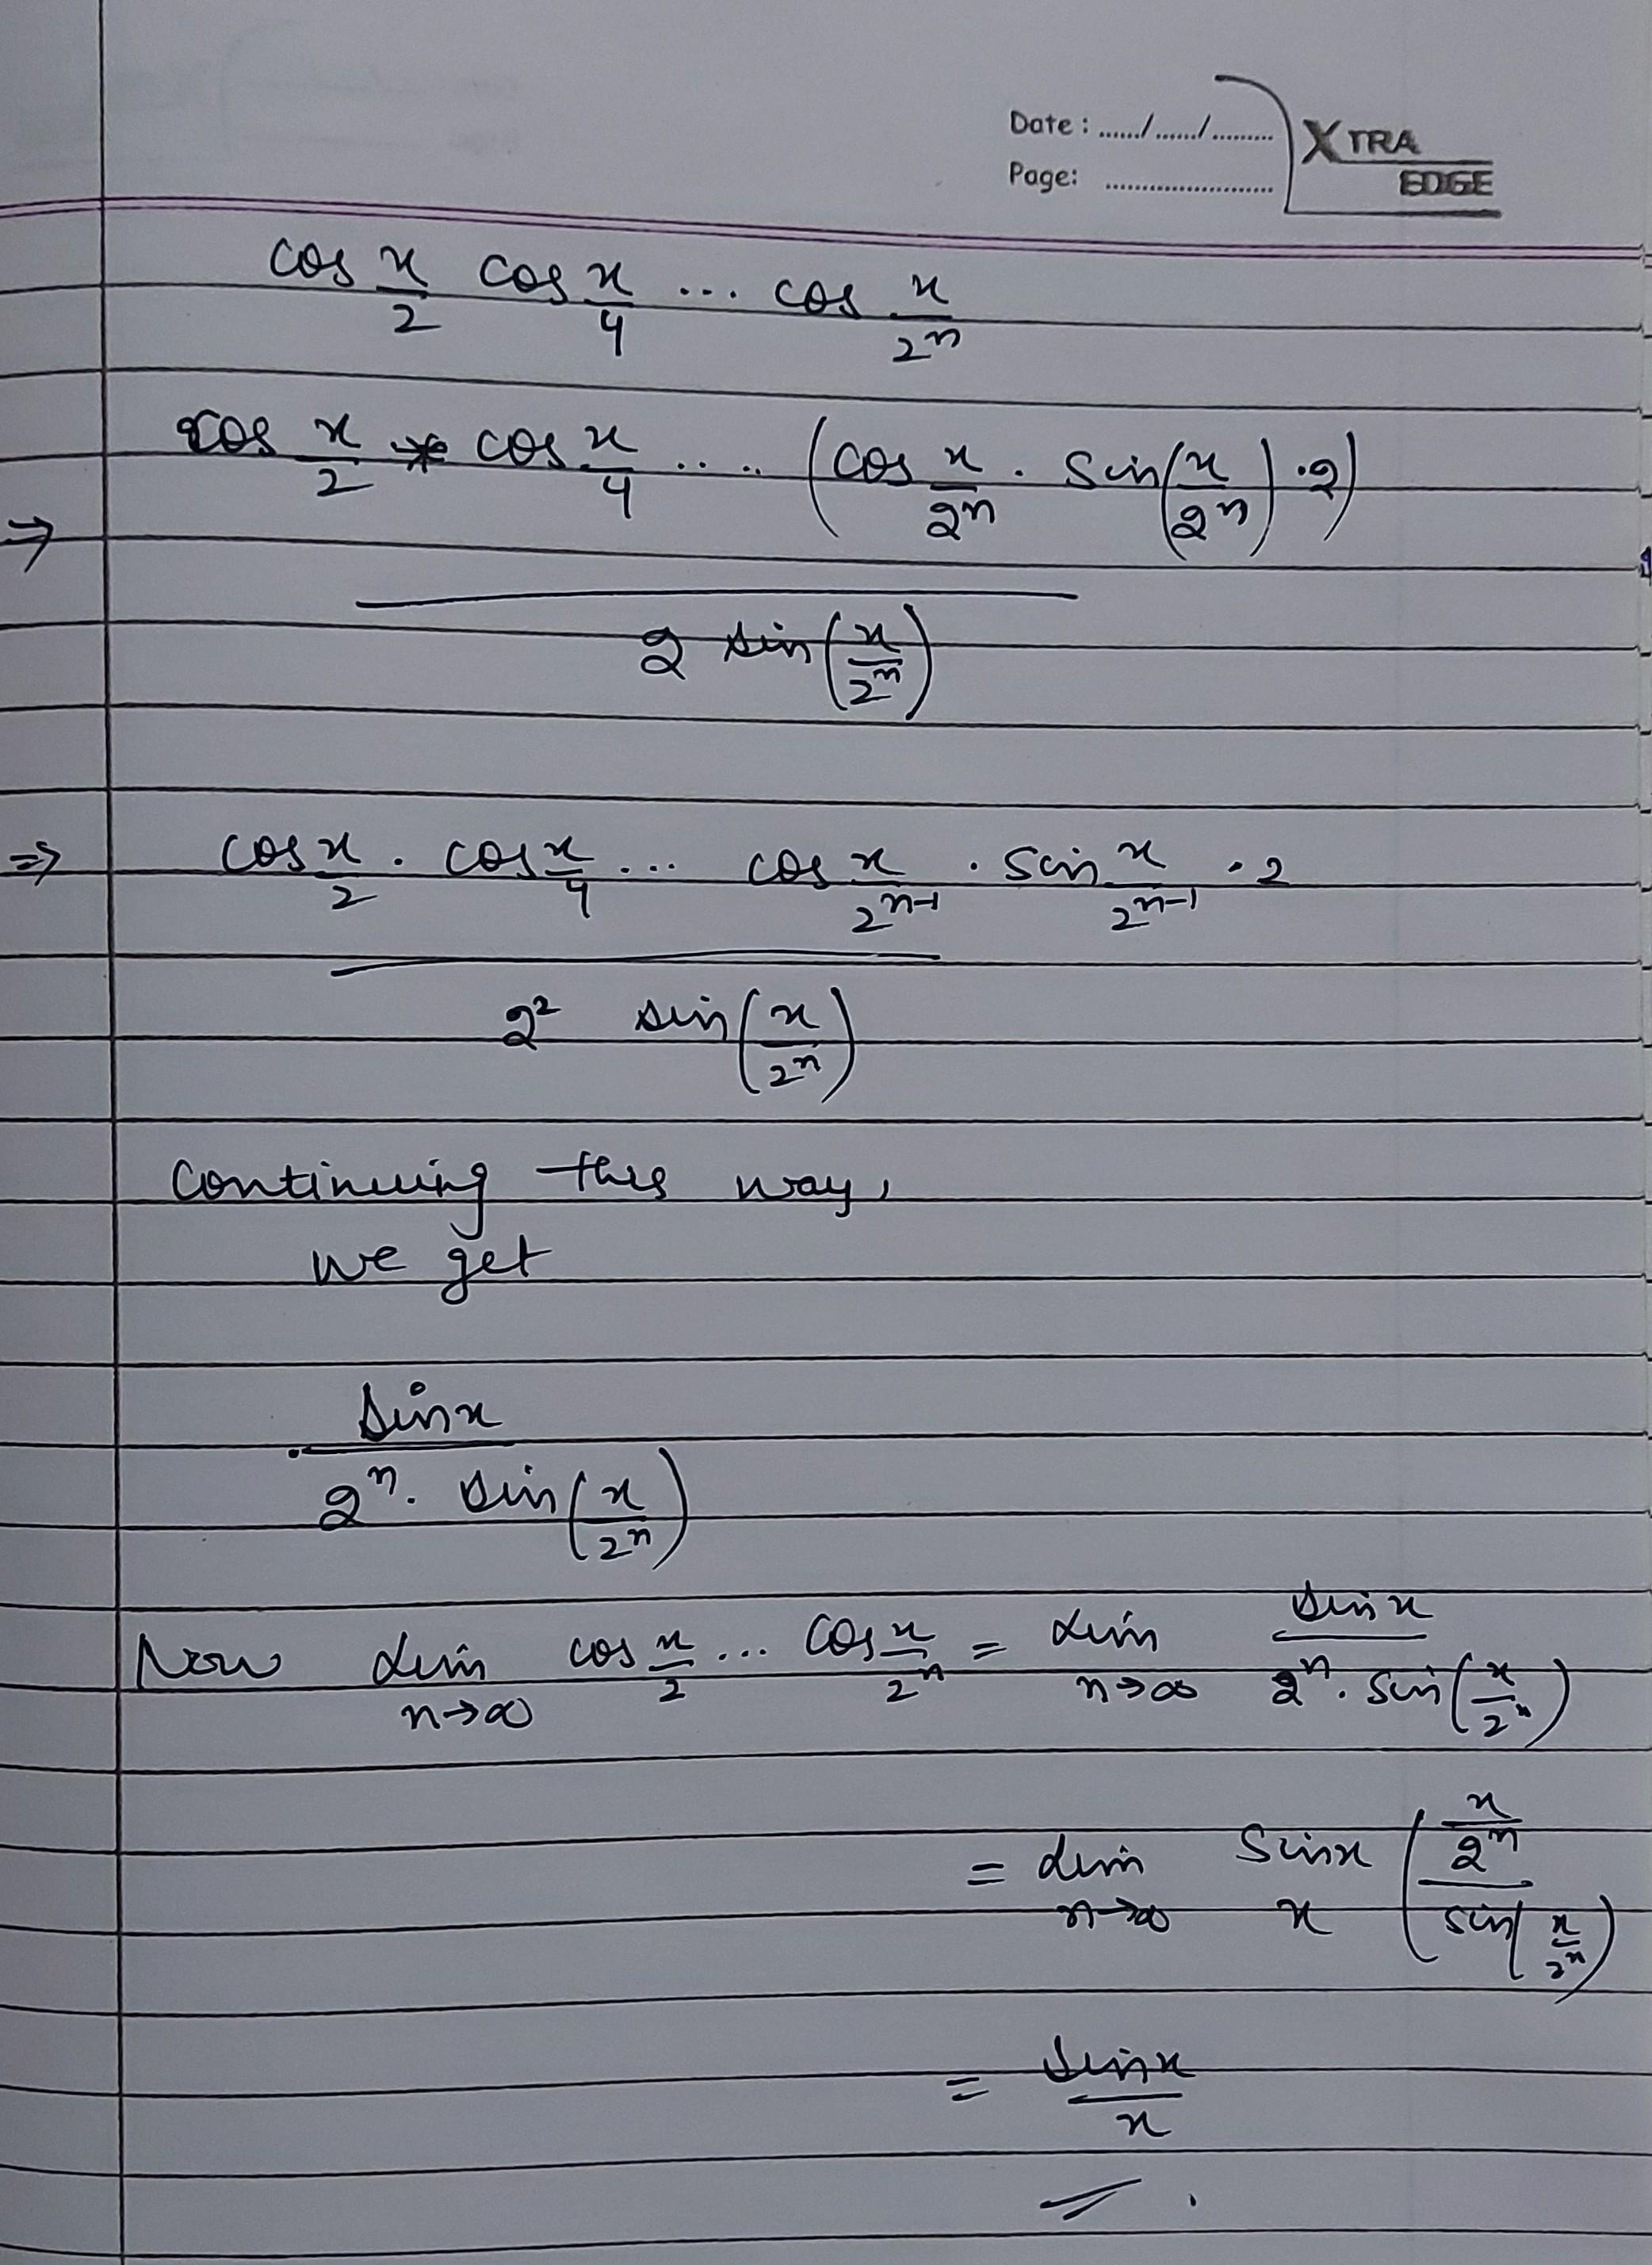 Date : ....../....../.........
Page: ........................
XTRA EDGE
cos x/2 cos x/4 ... cos x/2^n
⇒ cos x/2 cos x/4 ..... (cos x/2^n . sin(x/2^n) .2)
2 sin(x/2^n)
⇒ cos x/2 . cos x/4 ... cos x/2^(n-1) . sin x/2^(n-1) . 2
2^2 sin(x/2^n)
Continuing this way,
we get
sin x
2^n . sin(x/2^n)
Now Lim n→∞ cos x/2 ... cos x/2^n = Lim n→∞ sin x / 2^n . sin(x/2^n)
= Lim n→∞ sin x / x ( x/2^n / sin(x/2^n) )
= sin x / x